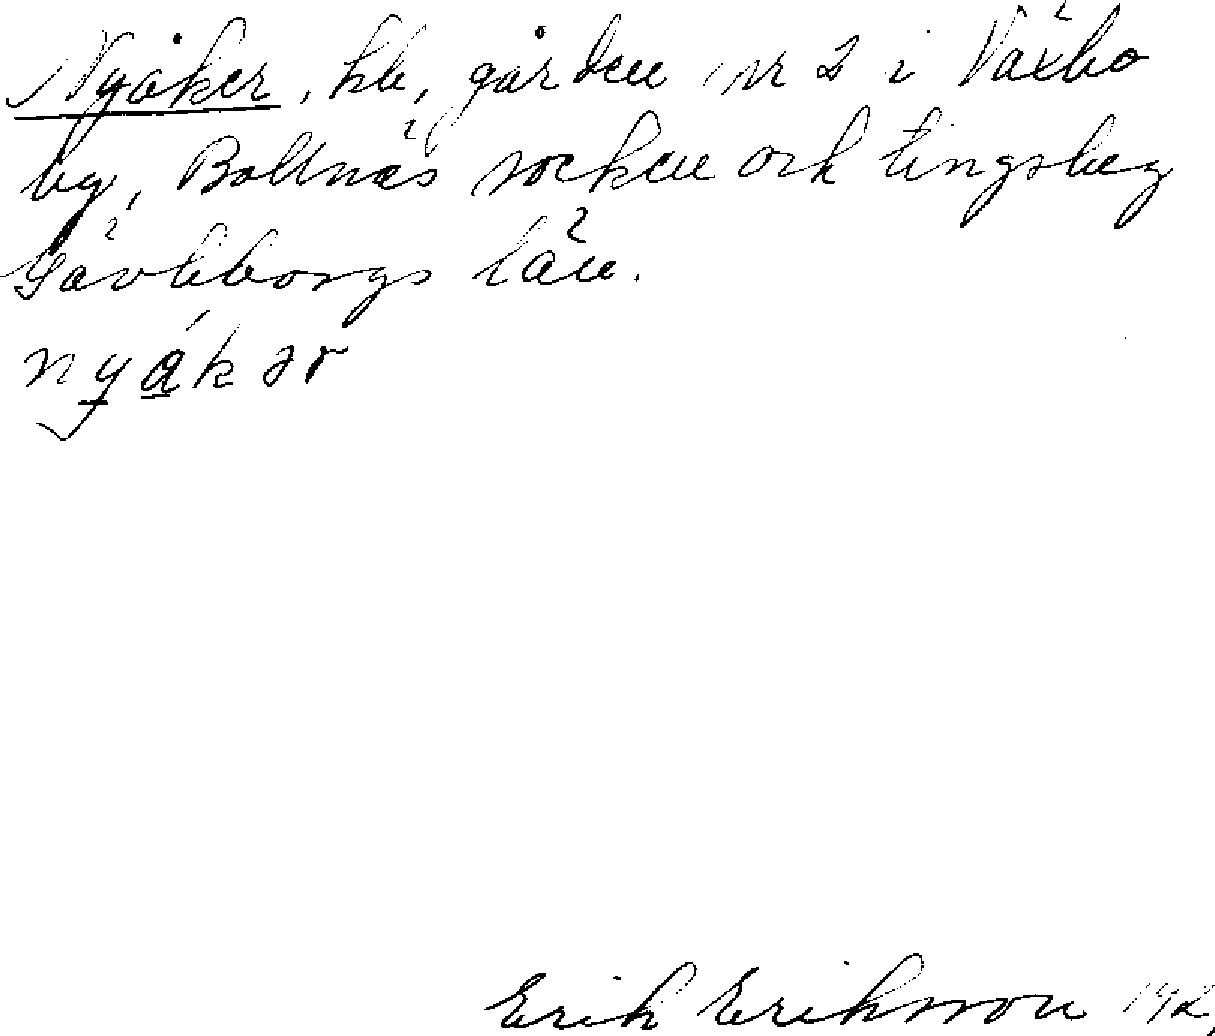 Nyåker, hb, gården nr 2 i Växbo
by, Bollnäs socken och tingslag
Gävleborgs län.
nyákər
Erik Eriksson